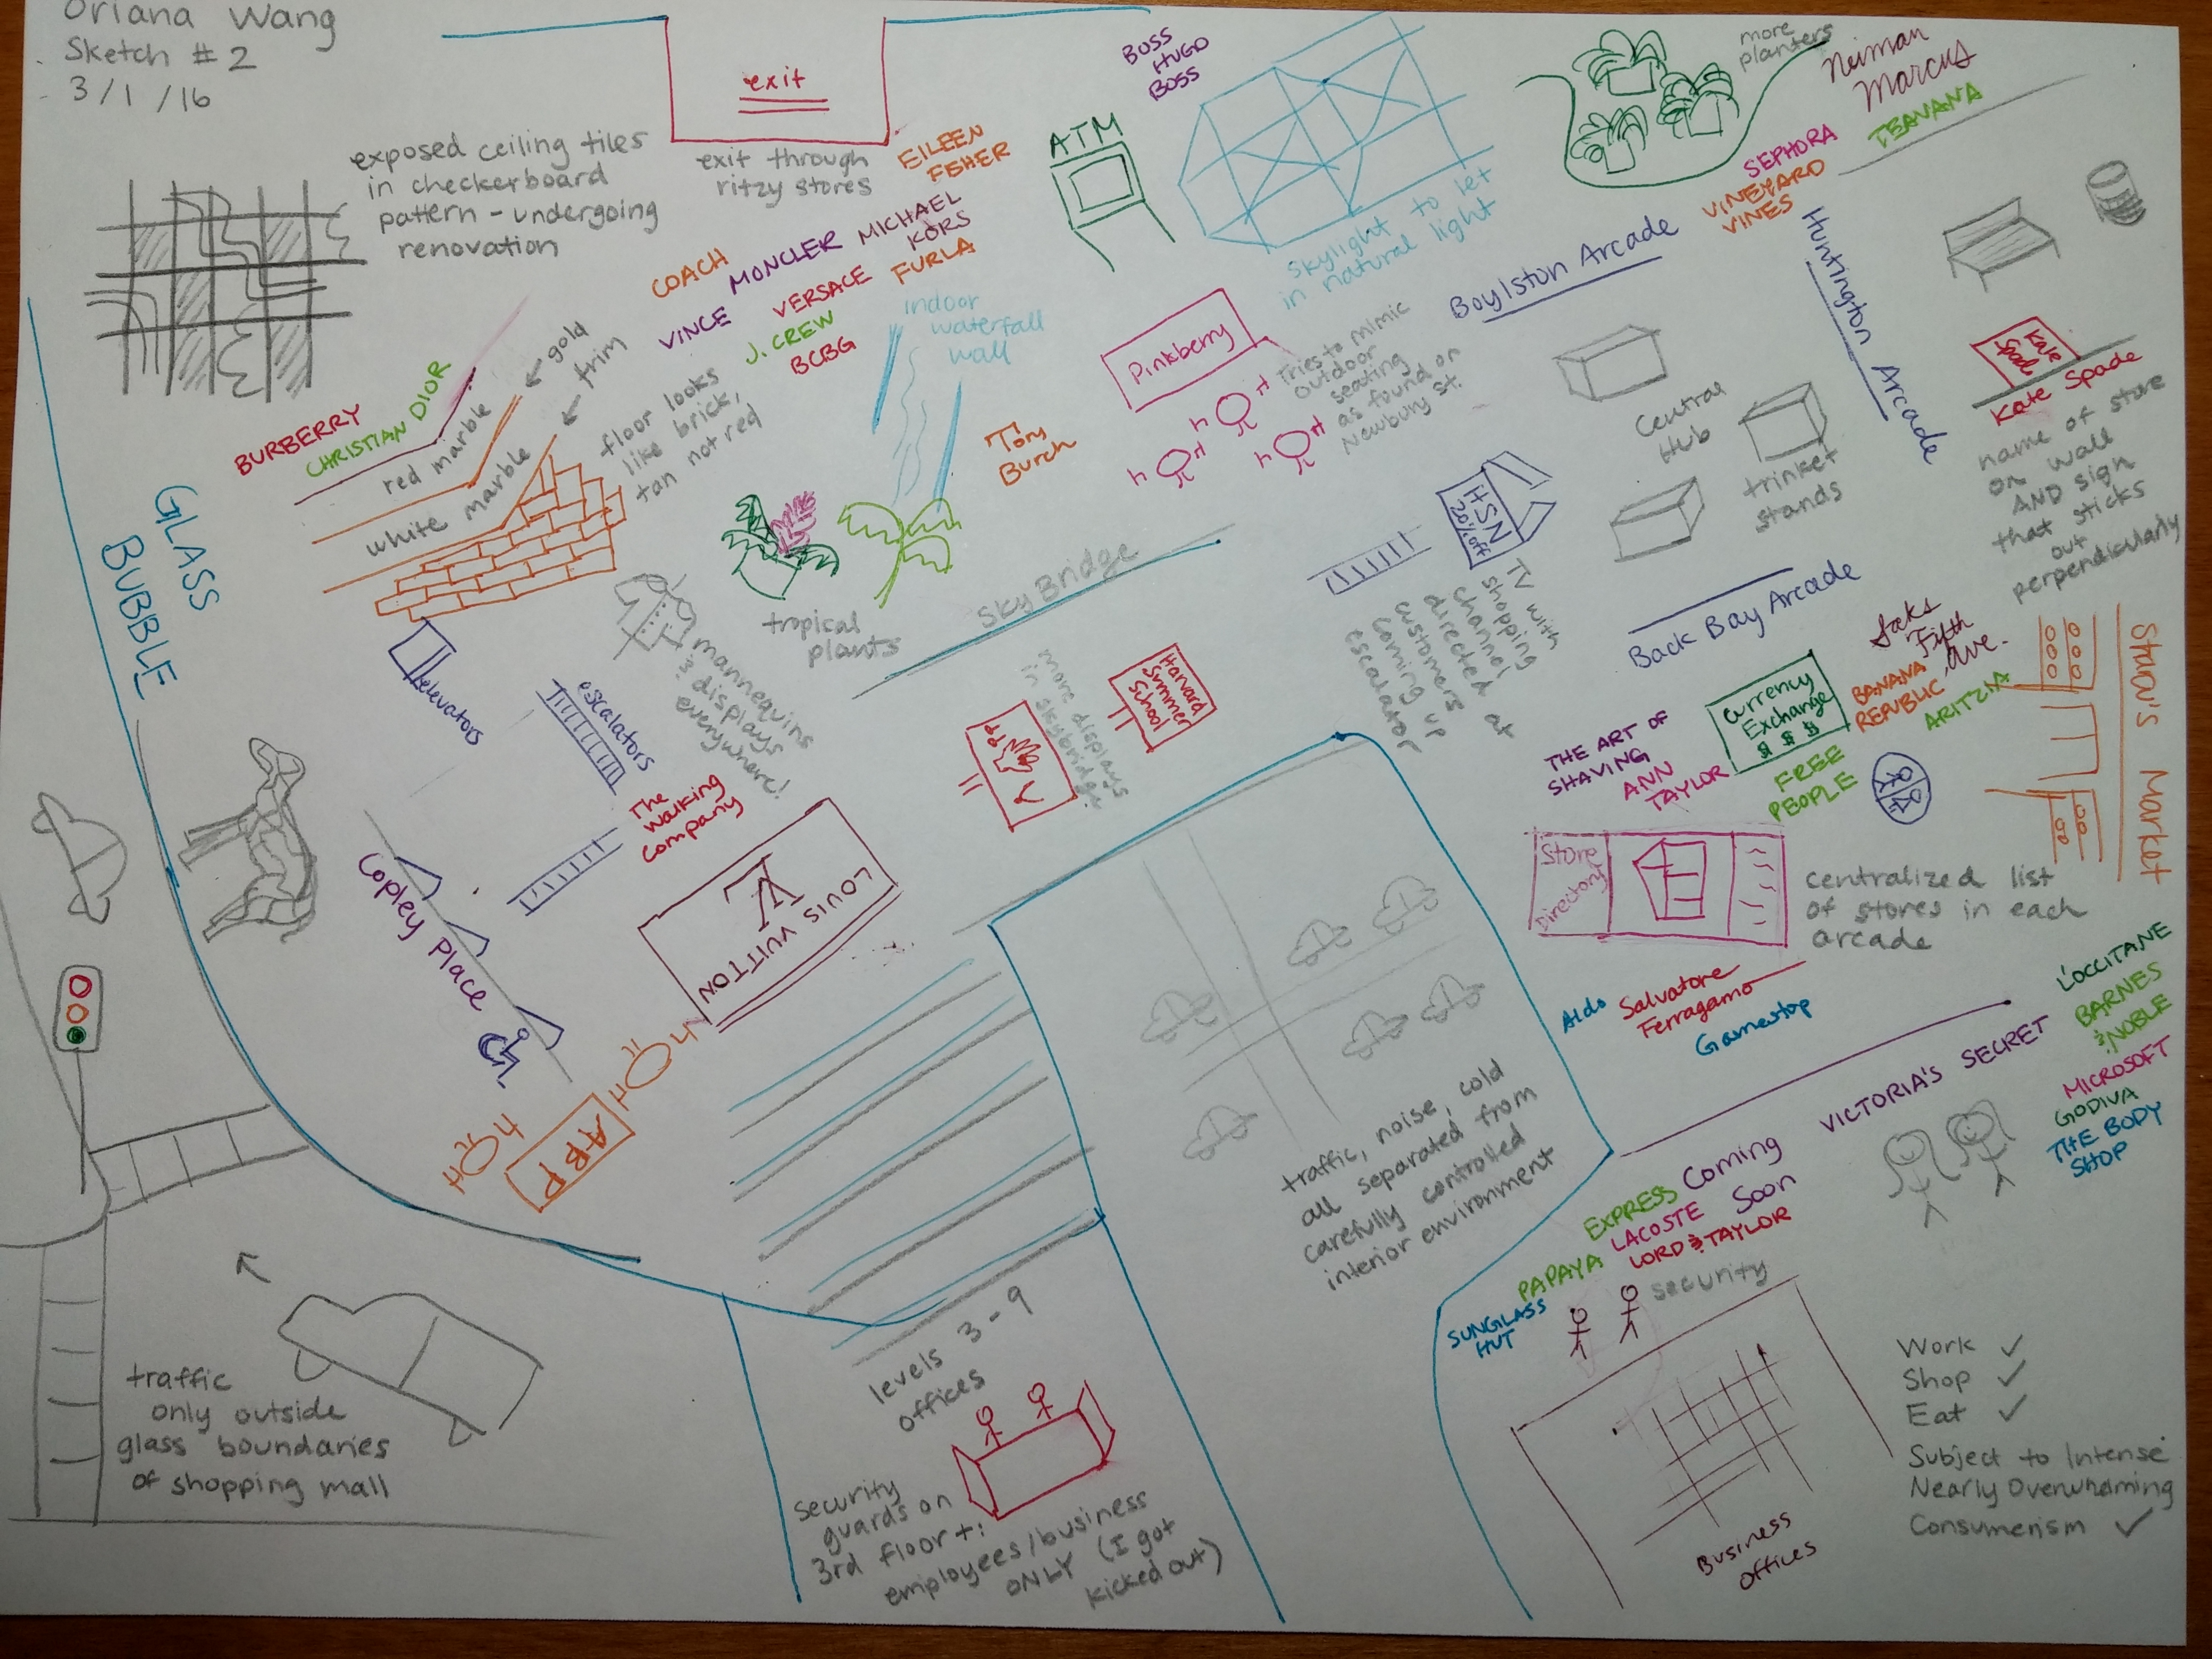 Oriana Wang
Sketch # 2
3/1/16
exit
exit through
ritzy stores
exposed ceiling tiles
in checkerboard
pattern - undergoing
renovation
EILEEN
FSHER
MICHAEL
KORS
COACH
MONCLER
VINCE
VERSACE
FURLA
J. CREW
BCBG
ATM
BOSS
HUGO
BOSS
skylight to let
in natural light
more
planters
Neiman
Marcus
TEAVANA
SEPHORA
VINEYARD
VINES
Boylston Arcade
Huntington Arcade
Kate
Spade
Kate Spade
name of store
on wall
AND sign
that sticks
out
perpendicularly
BURBERRY
CHRISTIAN DIOR
red marble
white marble
gold
trim
floor looks
like brick,
tan not red
indoor
waterfall
wall
Tory
Burch
Pinkberry
Tries to mimic
outdoor
seating
as found on
Newbury St.
Central
Hub
trinket
stands
HSN
20% off
TV with
shopping
channel
directed at
customers
coming up
escalator
GLASS
BUBBLE
tropical
plants
mannequins
& displays
everywhere!
elevators
escalators
SkyBridge
more displays
in skybridge
Harvard
Summer
School
Back Bay Arcade
Saks
Fifth
Ave.
BANANA
REPUBLIC
ARITZIA
Currency
Exchange
$ $ $
THE ART OF
SHAVING
ANN
TAYLOR
FREE
PEOPLE
Shaw's Market
The
Walking
Company
Copley Place
LOUIS VUITTON
LV
ABP
Store
Directory
centralized list
of stores in each
arcade
Aldo
Salvatore
Ferragamo
Gamestop
L'OCCITANE
BARNES
& NOBLE
MICROSOFT
GODIVA
THE BODY
SHOP
VICTORIA'S SECRET
traffic, noise, cold
all separated from
carefully controlled
interior environment
Coming
Soon
EXPRESS
LACOSTE
PAPAYA
LORD & TAYLOR
SUNGLASS
HUT
security
levels 3-9
offices
traffic
only outside
glass boundaries
of shopping mall
security
guards on
3rd floor+:
employees/business
ONLY (I got
kicked out)
Business
Offices
Work ✓
Shop ✓
Eat ✓
Subject to Intense
Nearly Overwhelming
Consumerism ✓